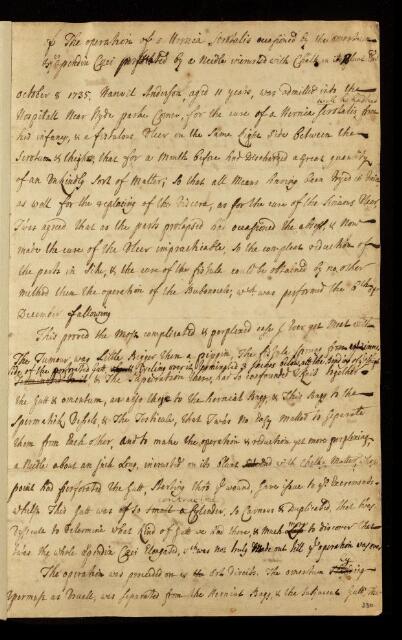 of The operation of a Hernia Scrotalis occasioned by the
Appendix Cæci perforated by a Needle incrusted with Chalk in its Blunt End
October 8 1735. Hanvil Anderson aged 11 years, was admitted into the
Hospitall Near Hyde parke Corner, for the cure of a Hernia Scrotalis from
wch he had had
his infancy, & a fistulous Ulcer in the Same Right Side between the
Scrotum & thighs, that for a Month before had Discharged a great quantity
of an Unkindly Sort of Matter; So that all Means having been tryed in Vain
as well for the replacing of the Viscera, as for the cure of the Sinious Ulcer
Twas agreed that as the parts prolapsed had occasioned the & Now
made the cure of the Ulcer impracticable, So the compleat reduction of
the parts in Situ, & the cure of the fistula could be obtained by no other
method then the operation of the Bubonocele, wch was performed the of
December following
This proved the Most complicated & perplexed case I Ever yet Meet with
The Tumour was Little Bigger then a pippin, The fistula
& The Suppuration there, had So confounded & knit together
the Gutt & omentum, as also these to the Hernial Bagg, & This Bagg to the
Spermatick Vessels & The Testicule, that Twas No Easy Matter to Seperate
them from Each other, and to make the operation & reduction yet more perplexing,
a Needle about an Inch Long, incrusted on its Blunt End with Chalky Matter, whose
point had perforated the Gutt, Starting thro ye wound, Gave issue to ye Excrements
whilst This Gutt was of So Smal a Cylender, So Carnous & Duplicated, that twas
contracting
Difficult to Determine what kind of Gutt we had there, & much to discover that
twas the whole apendix Cæci Elongated, wch was not truly Made out till ye operation was over
The operation was proceeded on as Art Directs. The omentum
upermost as Usuall, was seperated from the Hernial Bagg, & the Subjacent Gutt, the
330